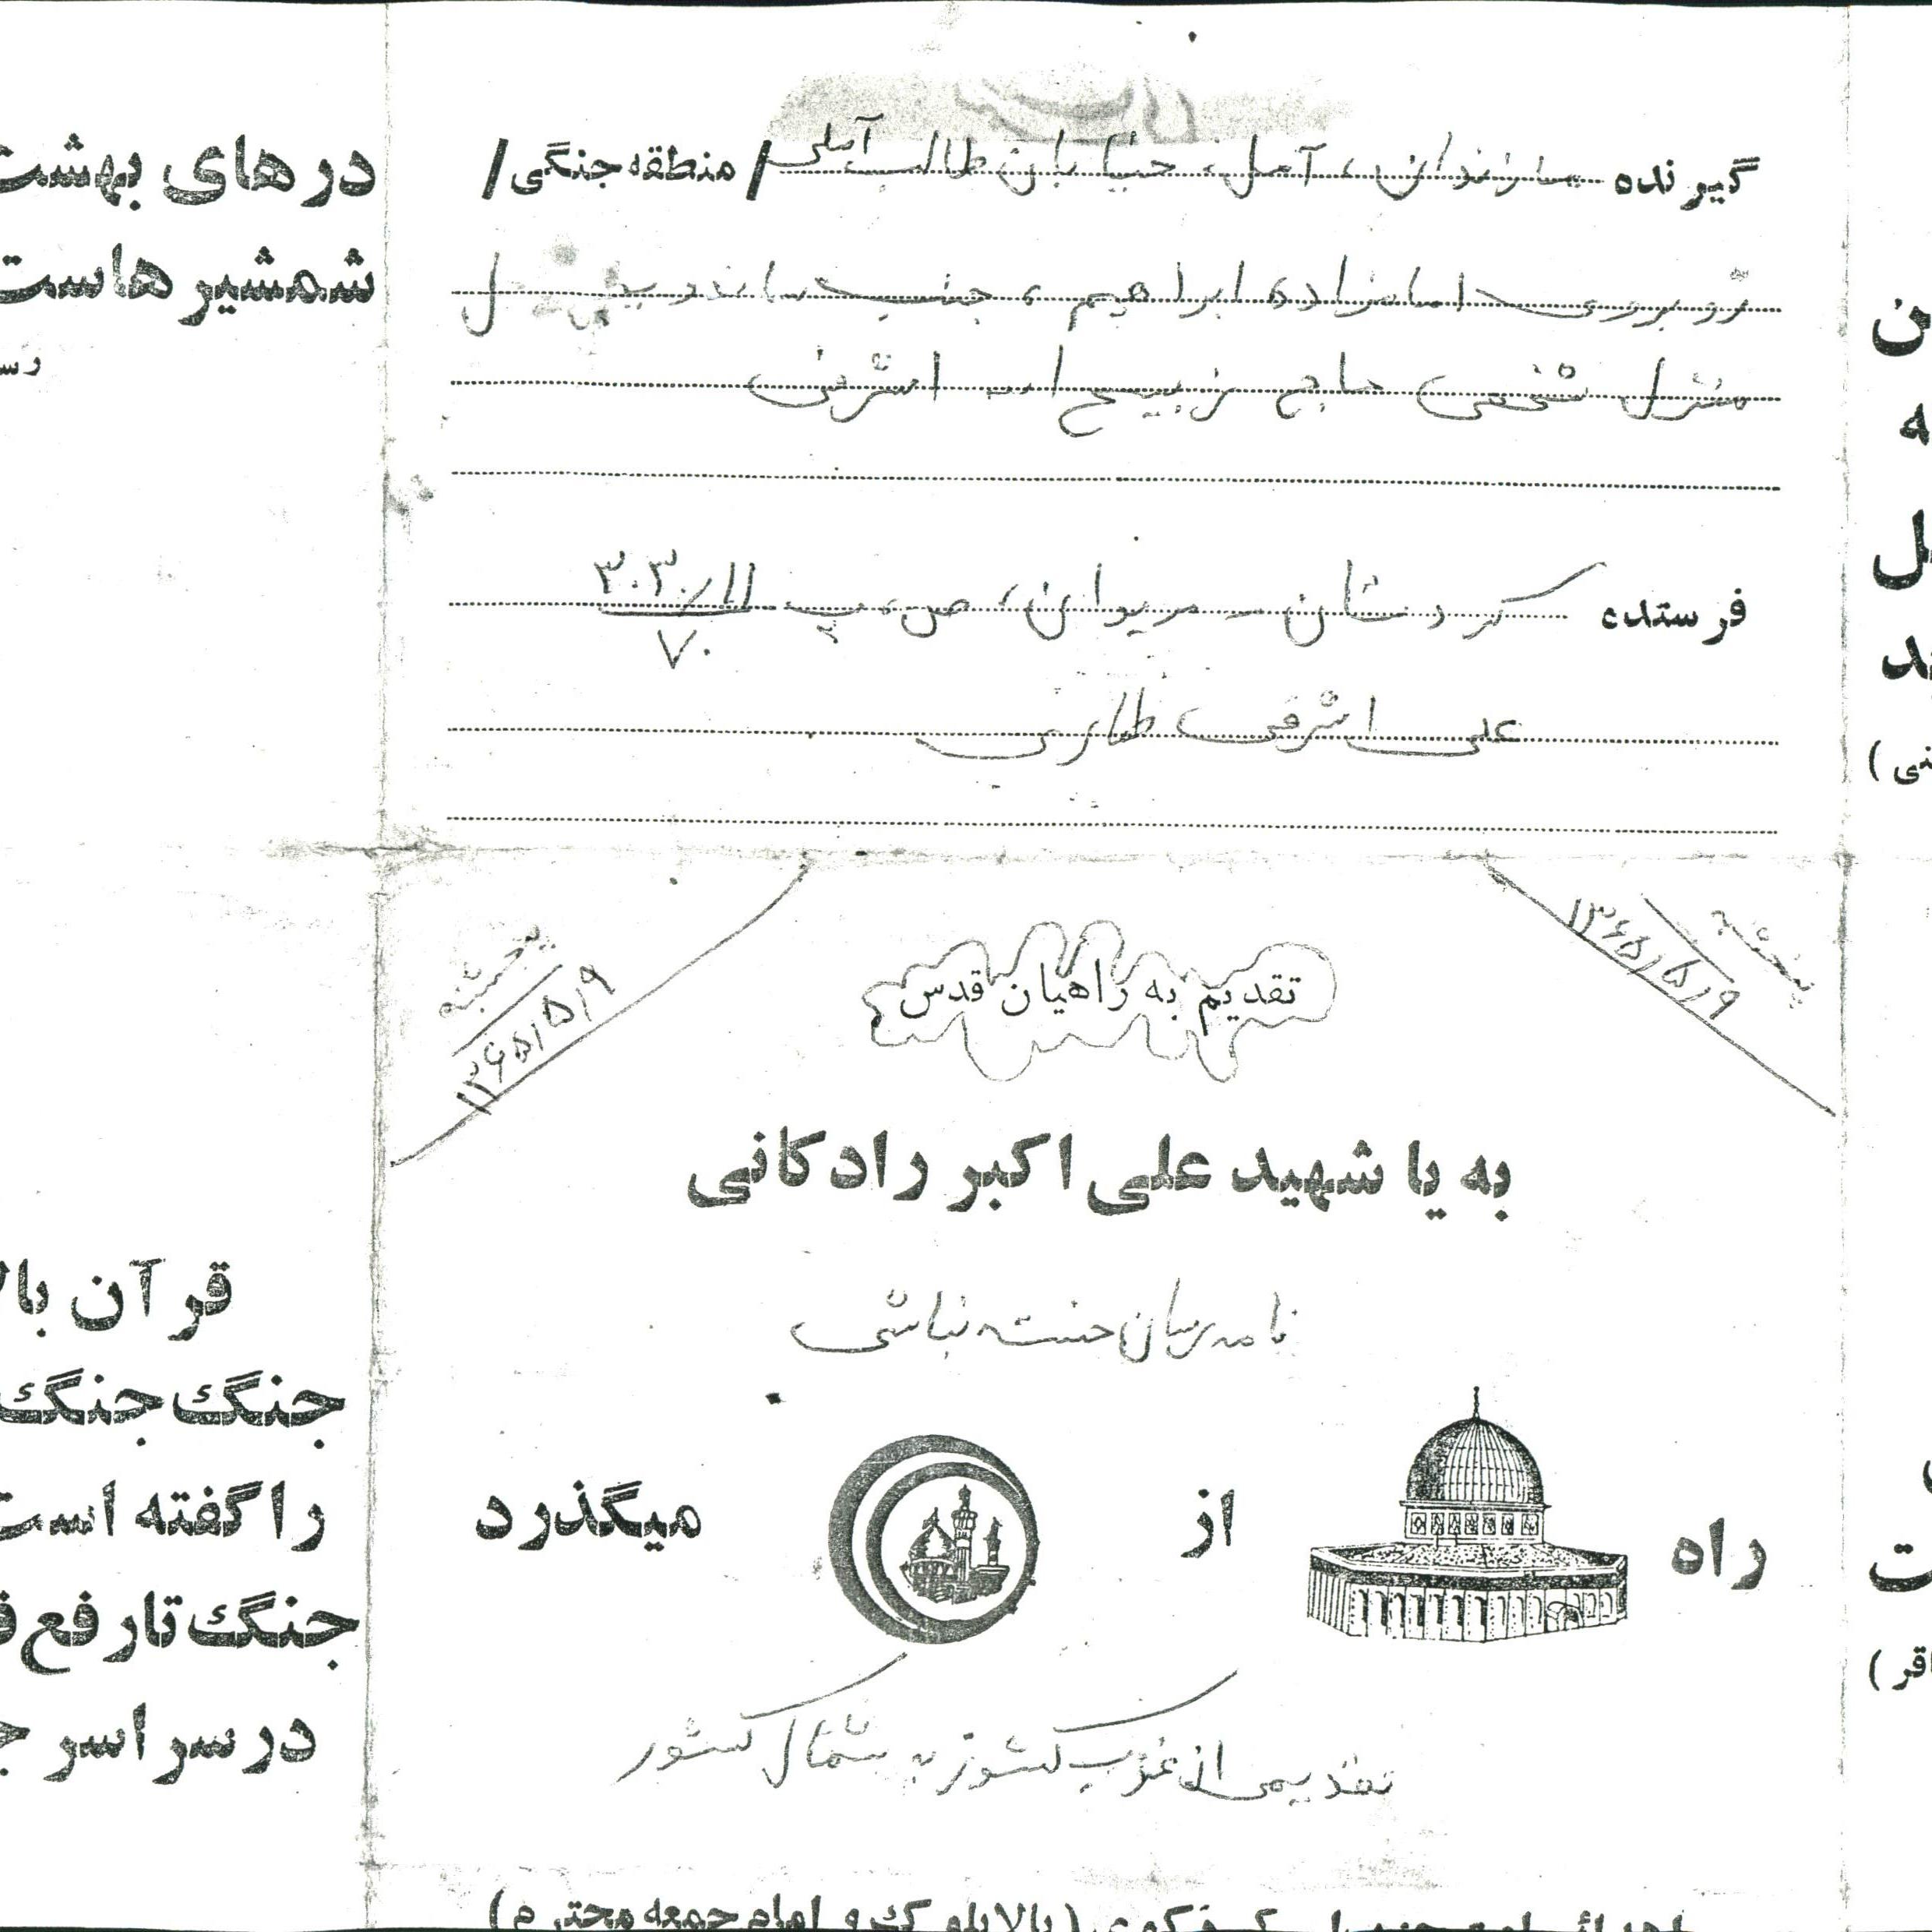 گیرنده مازندران، آمل، خیابان طالب آملی / منطقه جنگی /
روبروی امامزاده ابراهیم، جنب
منزل شخصی حاج ذبیح اله اشرفی
فرستنده کردستان - مریوان، ص، پ ۳۰۳۰/۱۱
۷۰
علی اشرفی طاری
پنجشنبه
۱۳۶۵/۵/۹
پنجشنبه
۱۳۶۵/۵/۹
تقدیم به راهیان قدس
به یا شهید علی اکبر رادکانی
نامه رسان خسته نباشی
راه از میگذرد
تقدیمی از غرب کشور به شمال کشور
(بالابلوک و امام جمعه محترم)
درهای بهشت
شمشیرهاست
قرآن
جنگ جنگ
را گفته است
جنگ تا رفع
در سراسر